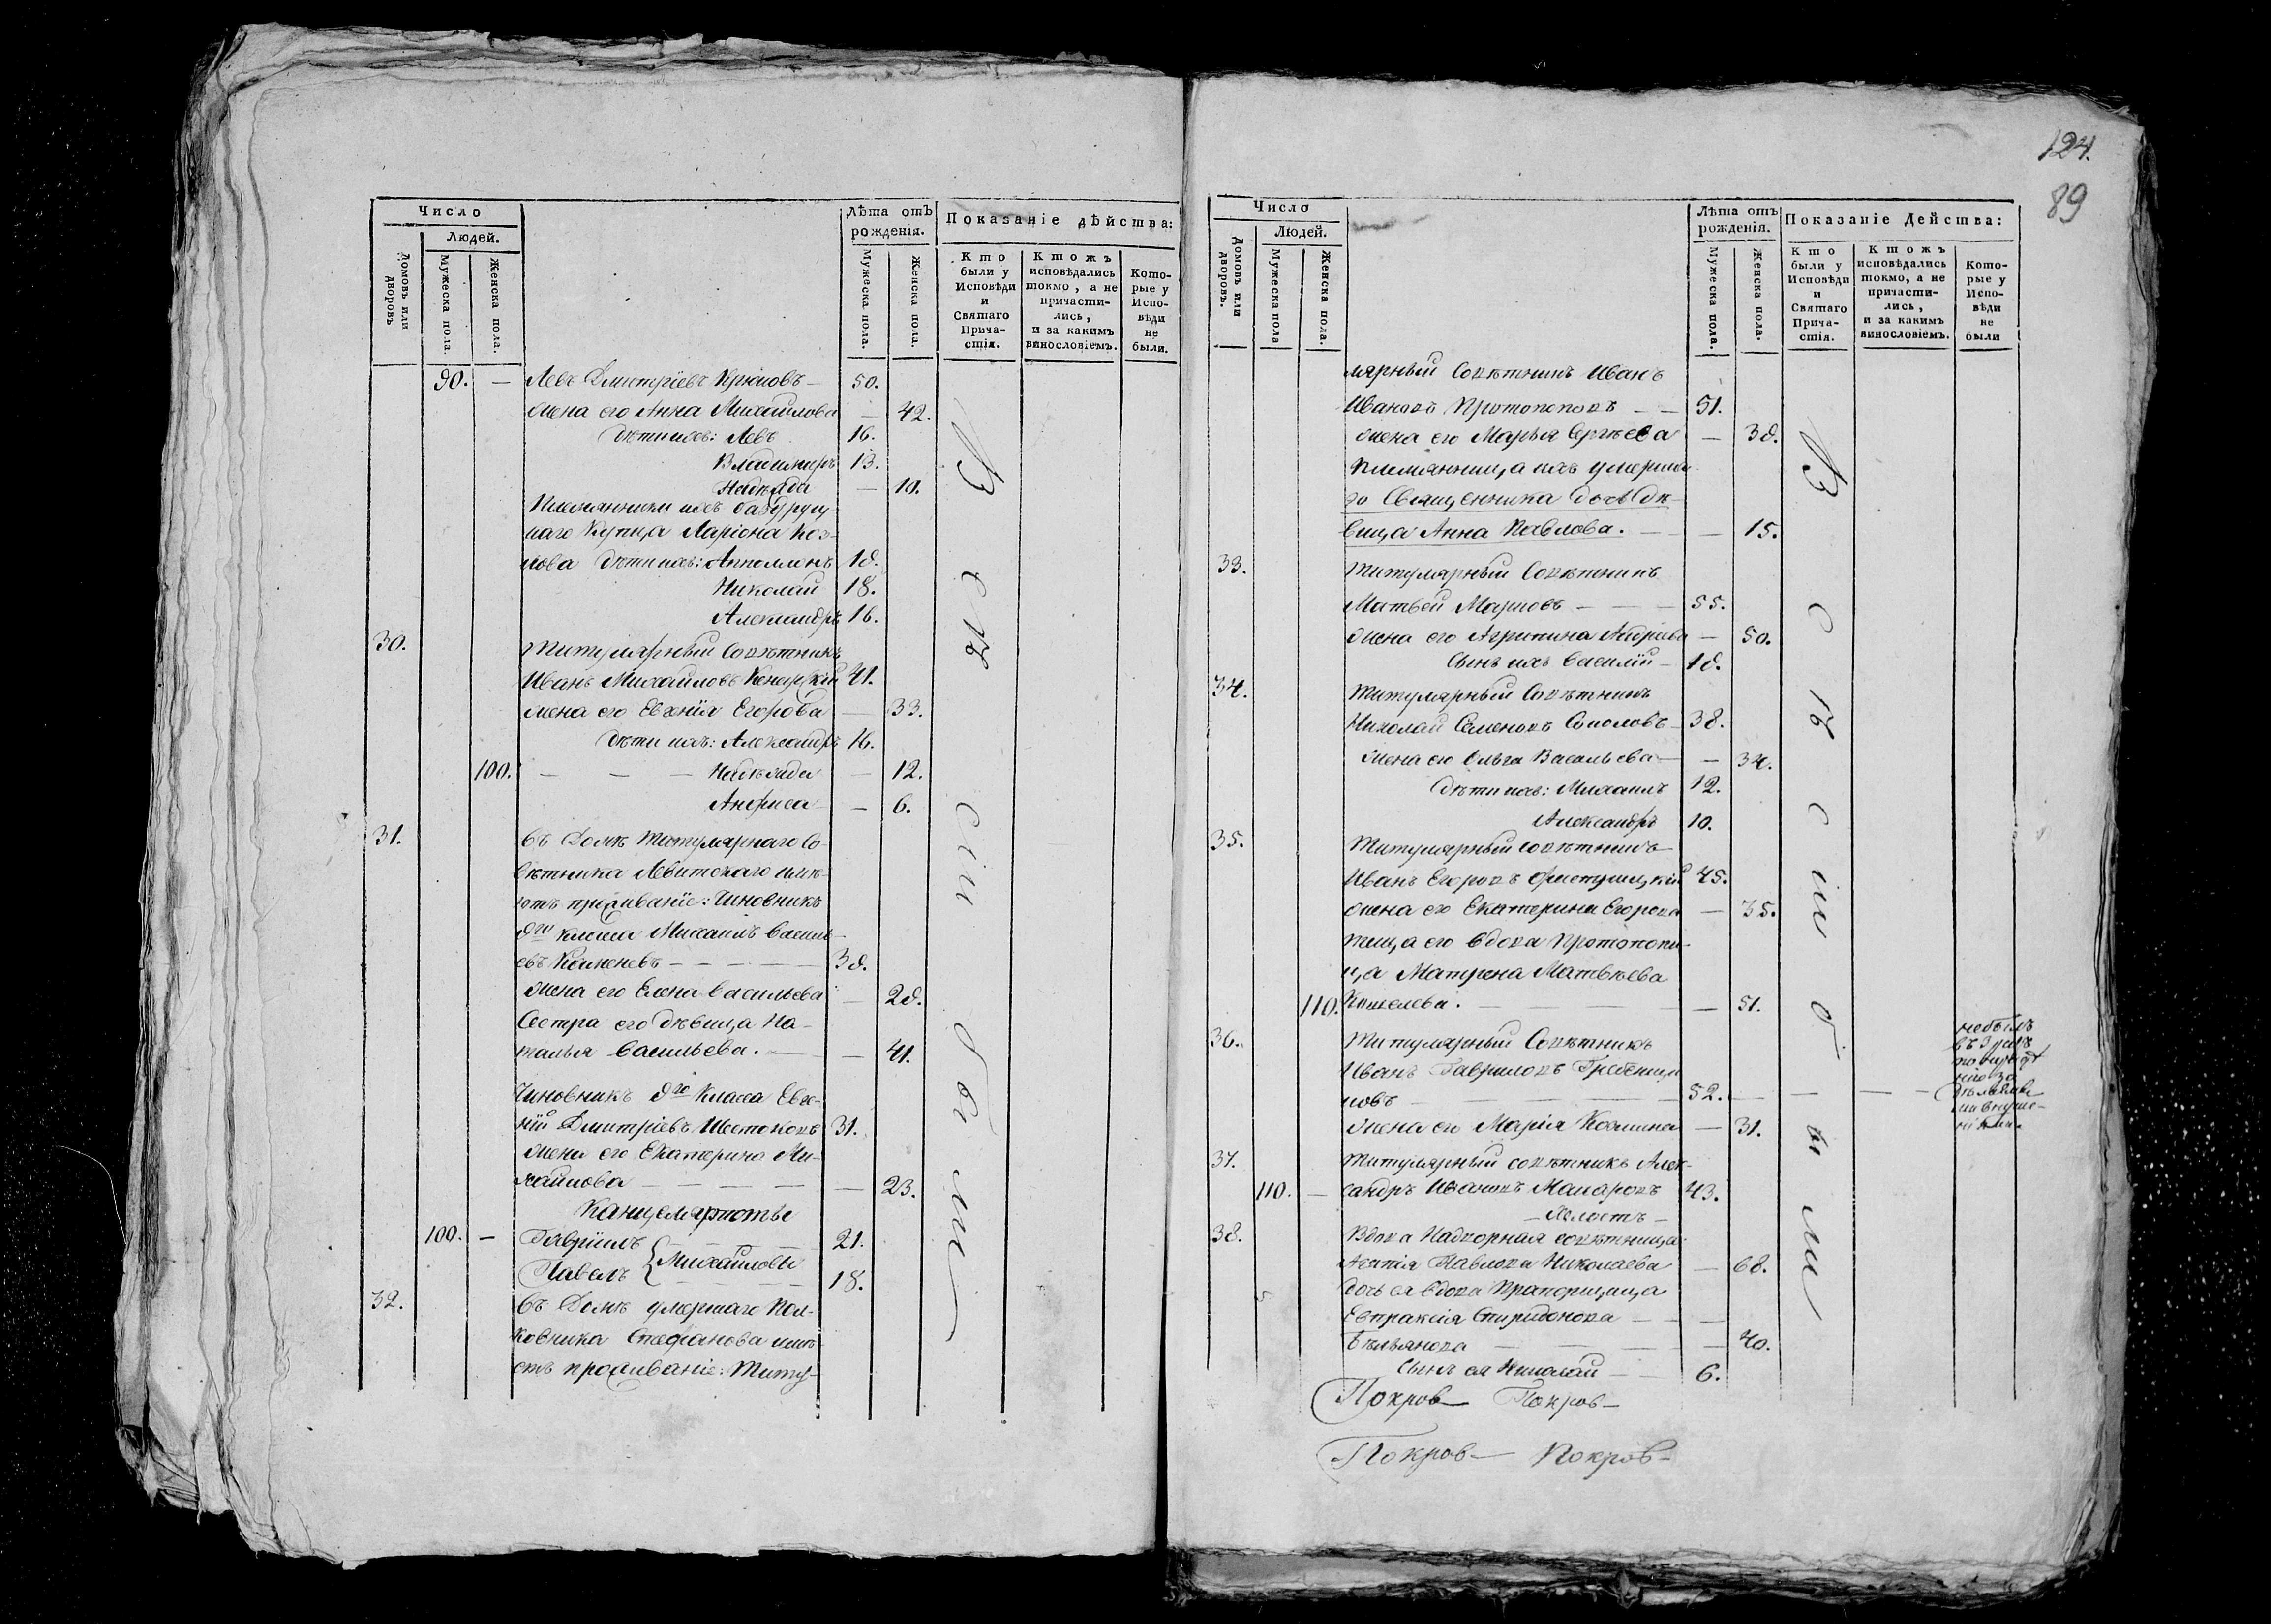 Число
Людей.
Домовъ или дворовъ
Мужеска пола.
Женска пола.
Лѣта отъ рожденія.
Мужеска пола.
Женска пола.
Показаніе дѣйства:
Кто были у Исповѣди и Святаго Прича-стія.
Ктожъ исповѣдались токмо, а не причасти-лись, и за какимъ винословіемъ.
Кото-рые у Испо-вѣди не были.
90. — Левъ Дмитріевъ — 50.
жена его Анна Михайлова — 42.
дѣти ихъ: Левъ 16.
Владимиръ 13.
Надежда — 10.
Племянники ихъ
наго Купца Ларіона Коз-
лова дѣти ихъ: Апполлонъ 18.
Николай 18.
Александръ 16.
30. Титулярный Совѣтникъ
Иванъ Михайловъ 41.
жена его Евгенія Егорова — 33.
дѣти ихъ: Александръ 16.
100. — — — Надежда — 12.
Анфиса — 6.
31. въ Домѣ Титулярнаго Со-
вѣтника Левитскаго имѣ-
ютъ прживаніе: Чиновникъ
8го класса Михаилъ Василь-
евъ — — — — 38.
жена его Елена Васильева — 28.
Сестра его дѣвица На-
талья Васильева. — — 41.
Чиновникъ 8го Класса Евге-
ній Дмитріевъ Шестоковъ 31.
жена его Екатерина Ми-
хайлова — — — — — 23.
Канцеляристы
100. — Гавріилъ } Михайловы 21.
Павелъ 18.
32. въ Домѣ умершаго Пол-
ковника Стефанова имѣ-
етъ проживаніе: Титу-
всѣ сіи были
124.
89
Число
Людей.
Домовъ или дворовъ.
Мужеска пола
Женска пола.
Лѣта отъ рожденія.
Мужеска пола.
Женска пола.
Показаніе Действа:
Кто были у Исповѣди и Святаго Прича-стія.
Ктожъ исповѣдались токмо, а не причасти-лись, и за какимъ винословіемъ.
Кото-рые у Испо-вѣди не были
лярный Совѣтникъ Иванъ
Ивановъ Протопоповъ — — 51.
жена его Марья Сергѣева — 38.
племянница ихъ умерша-
го Священника дочь дѣ-
вица Анна Павлова. — — 15.
33. Титулярный Совѣтникъ
Матвей Марковъ — — — 55.
жена его Агрипина Андреева — 50.
Сынъ ихъ Василій — 18.
34. Титулярный Совѣтникъ
Николай Семеновъ Соколовъ — 38.
жена его Ольга Васильева — — 34.
дѣти ихъ: Михаилъ 12.
Александръ 10.
35. Титулярный совѣтникъ
Иванъ Егоровъ 45.
жена его Екатерина Егорова — 35.
теща его вдова Протопопи-
ца Матрена Матвѣева
110. Кошелева. — — — 51.
36. Титулярный Совѣтникъ
Иванъ Гавриловъ Гребенщи
ковъ — — — 52. — — —
небылъ
жена его Марія Козмина — 31.
37. Титулярный совѣтникъ Алек-
110. — сандръ Ивановъ Макаровъ 43.
— Холостъ —
38. Вдова Надворная совѣтница
Павлова Николаева — 68.
дочь ея вдова Прапорщица
Евпраксія Спиридонова — — —
— — — — 40.
Сынъ ея Николай — — 6.
всѣ сіи были
Покров— Покров—
Покров— Покров—